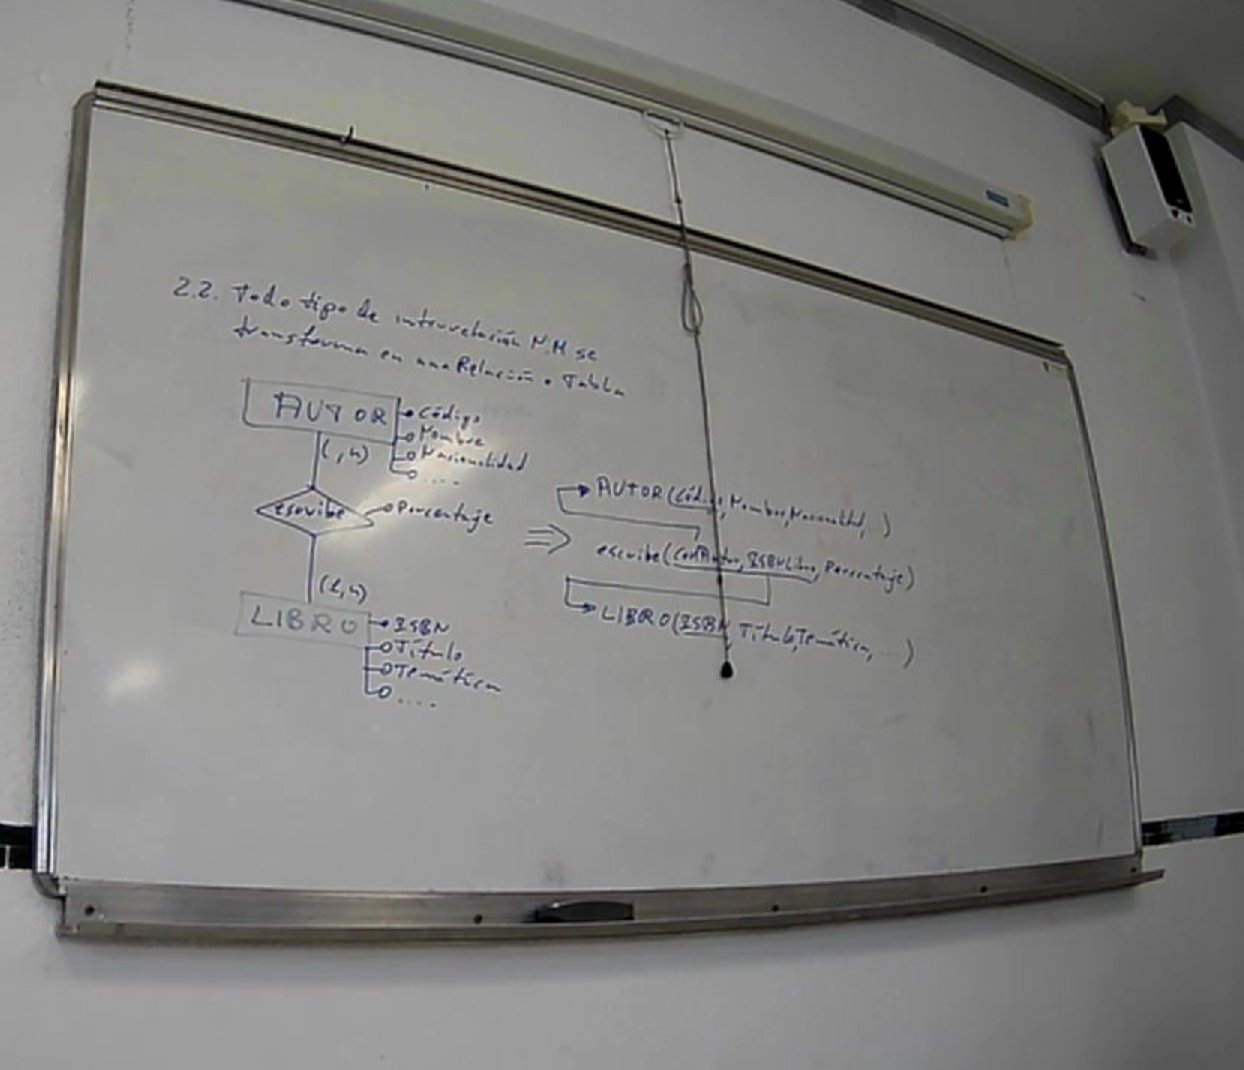 2.2. Todo tipo de interrelación N:M se
transforma en una Relación o Tabla
AUTOR
Código
Nombre
Nacionalidad
....
(1,n)
escribe
Porcentaje
(1,n)
LIBRO
ISBN
Título
Temática
....
⇒
AUTOR (Código, Nombre, Nacionalidad, ..)
escribe (CodAutor, ISBNLibro, Porcentaje)
LIBRO (ISBN, Título, Temática, ...)